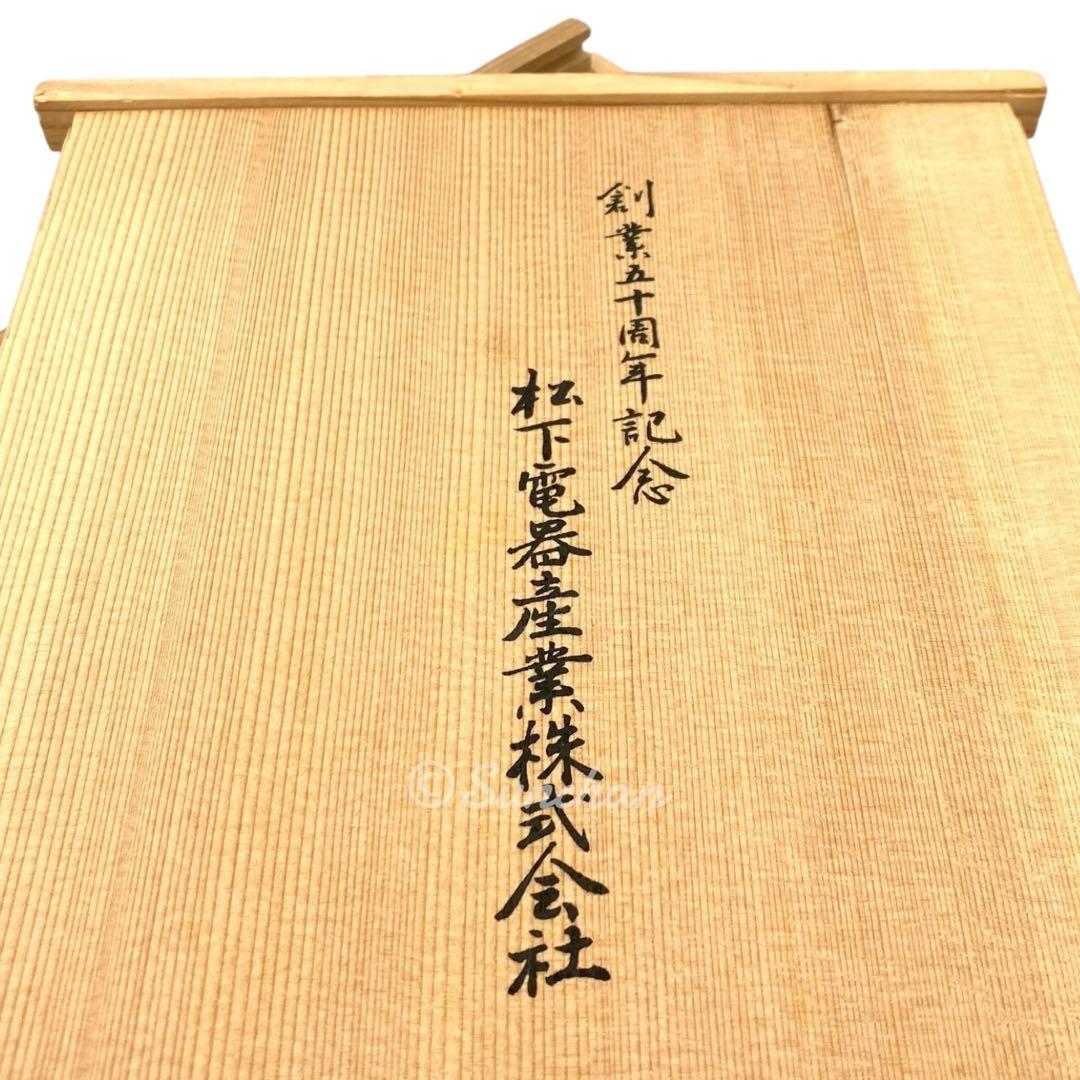 創業五十周年記念
松下電器産業株式会社